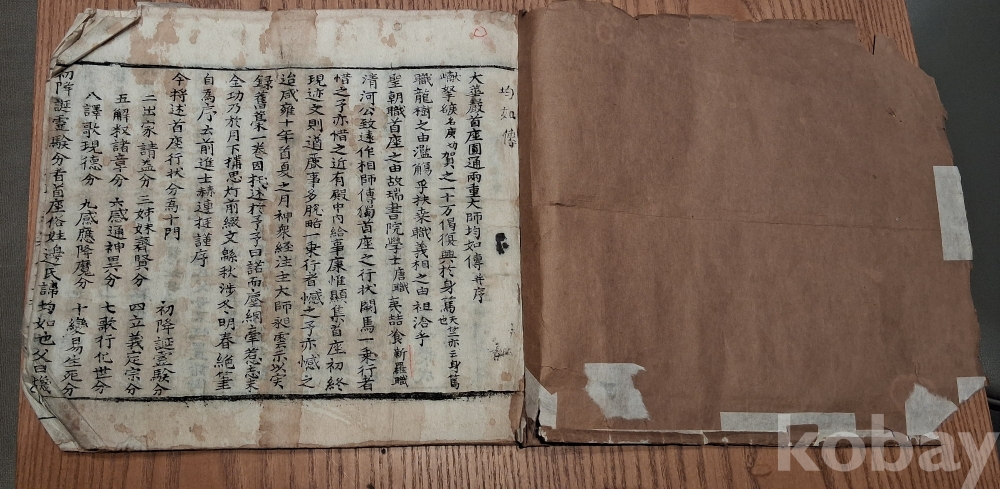 均如傳
大華嚴首座圓通兩重大師均如傳 并序
職龍樹之由濫觴乎 來職義相之由祖洽乎
聖朝職首座之由故瑞書院學士
清河公致遠作相師傳獨首座之行狀闕焉一乘行者
惜之予亦惜之近有殿中內給事康惟顯集首座初終
現迹文則遒 事多脫略一乘行者憾之予亦憾之
迨咸雍十年首夏之月神衆經注主大師昶雲示以實
錄舊藁一卷因 於予予曰諾而塵網牽惹志未
全功乃於月下構思灯前綴文緜秋涉冬明春絶筆
自爲序云前進士赫連挺謹序
今將述首座行狀分爲十門
初降誕霊驗分
二出家請益分 三姊妹齊賢分 四立義定宗分
五解釈諸章分 六感通神異分 七歌行化世分
八譯歌現德分 九感應降魔分 十變易生死分
初降誕霊驗分者首座俗姓邊氏諱均如也父曰
kobay